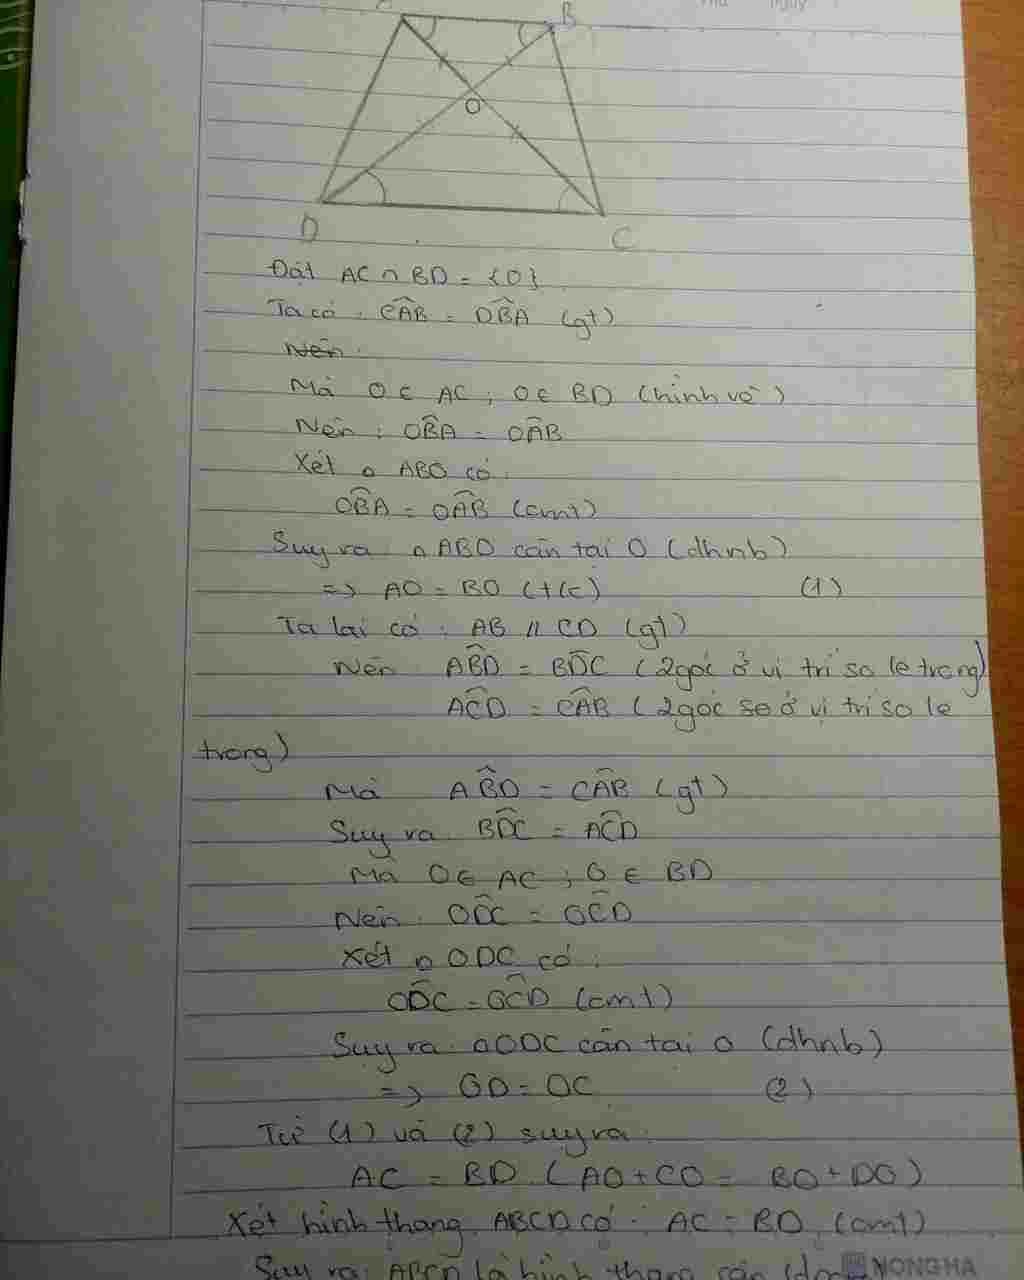 B
O
D
C
Đặt AC ∩ BD = {O}
Ta có: CAB = DBA (gt)
Nên
Mà O ∈ AC; O ∈ BD (hình vẽ)
Nên: OBA = OAB
Xét △ ABO có:
OBA = OAB (cmt)
Suy ra △ ABO cân tại O (dhnb)
=> AO = BO (t/c) (1)
Ta lại có: AB // CD (gt)
Nên ABD = BDC (2 góc ở vị trí so le trong)
ACD = CAB (2 góc so ở vị trí so le
trong)
Mà ABD = CAB (gt)
Suy ra BDC = ACD
Mà O ∈ AC; O ∈ BD
Nên: ODC = OCD
Xét △ ODC có:
ODC = OCD (cmt)
Suy ra △ODC cân tại O (dhnb)
=> OD = OC (2)
Từ (1) và (2) suy ra:
AC = BD (AO + CO = BO + DO)
Xét hình thang ABCD có: AC = BD (cmt)
Suy ra: ABCD là hình thang cân
NONGHA